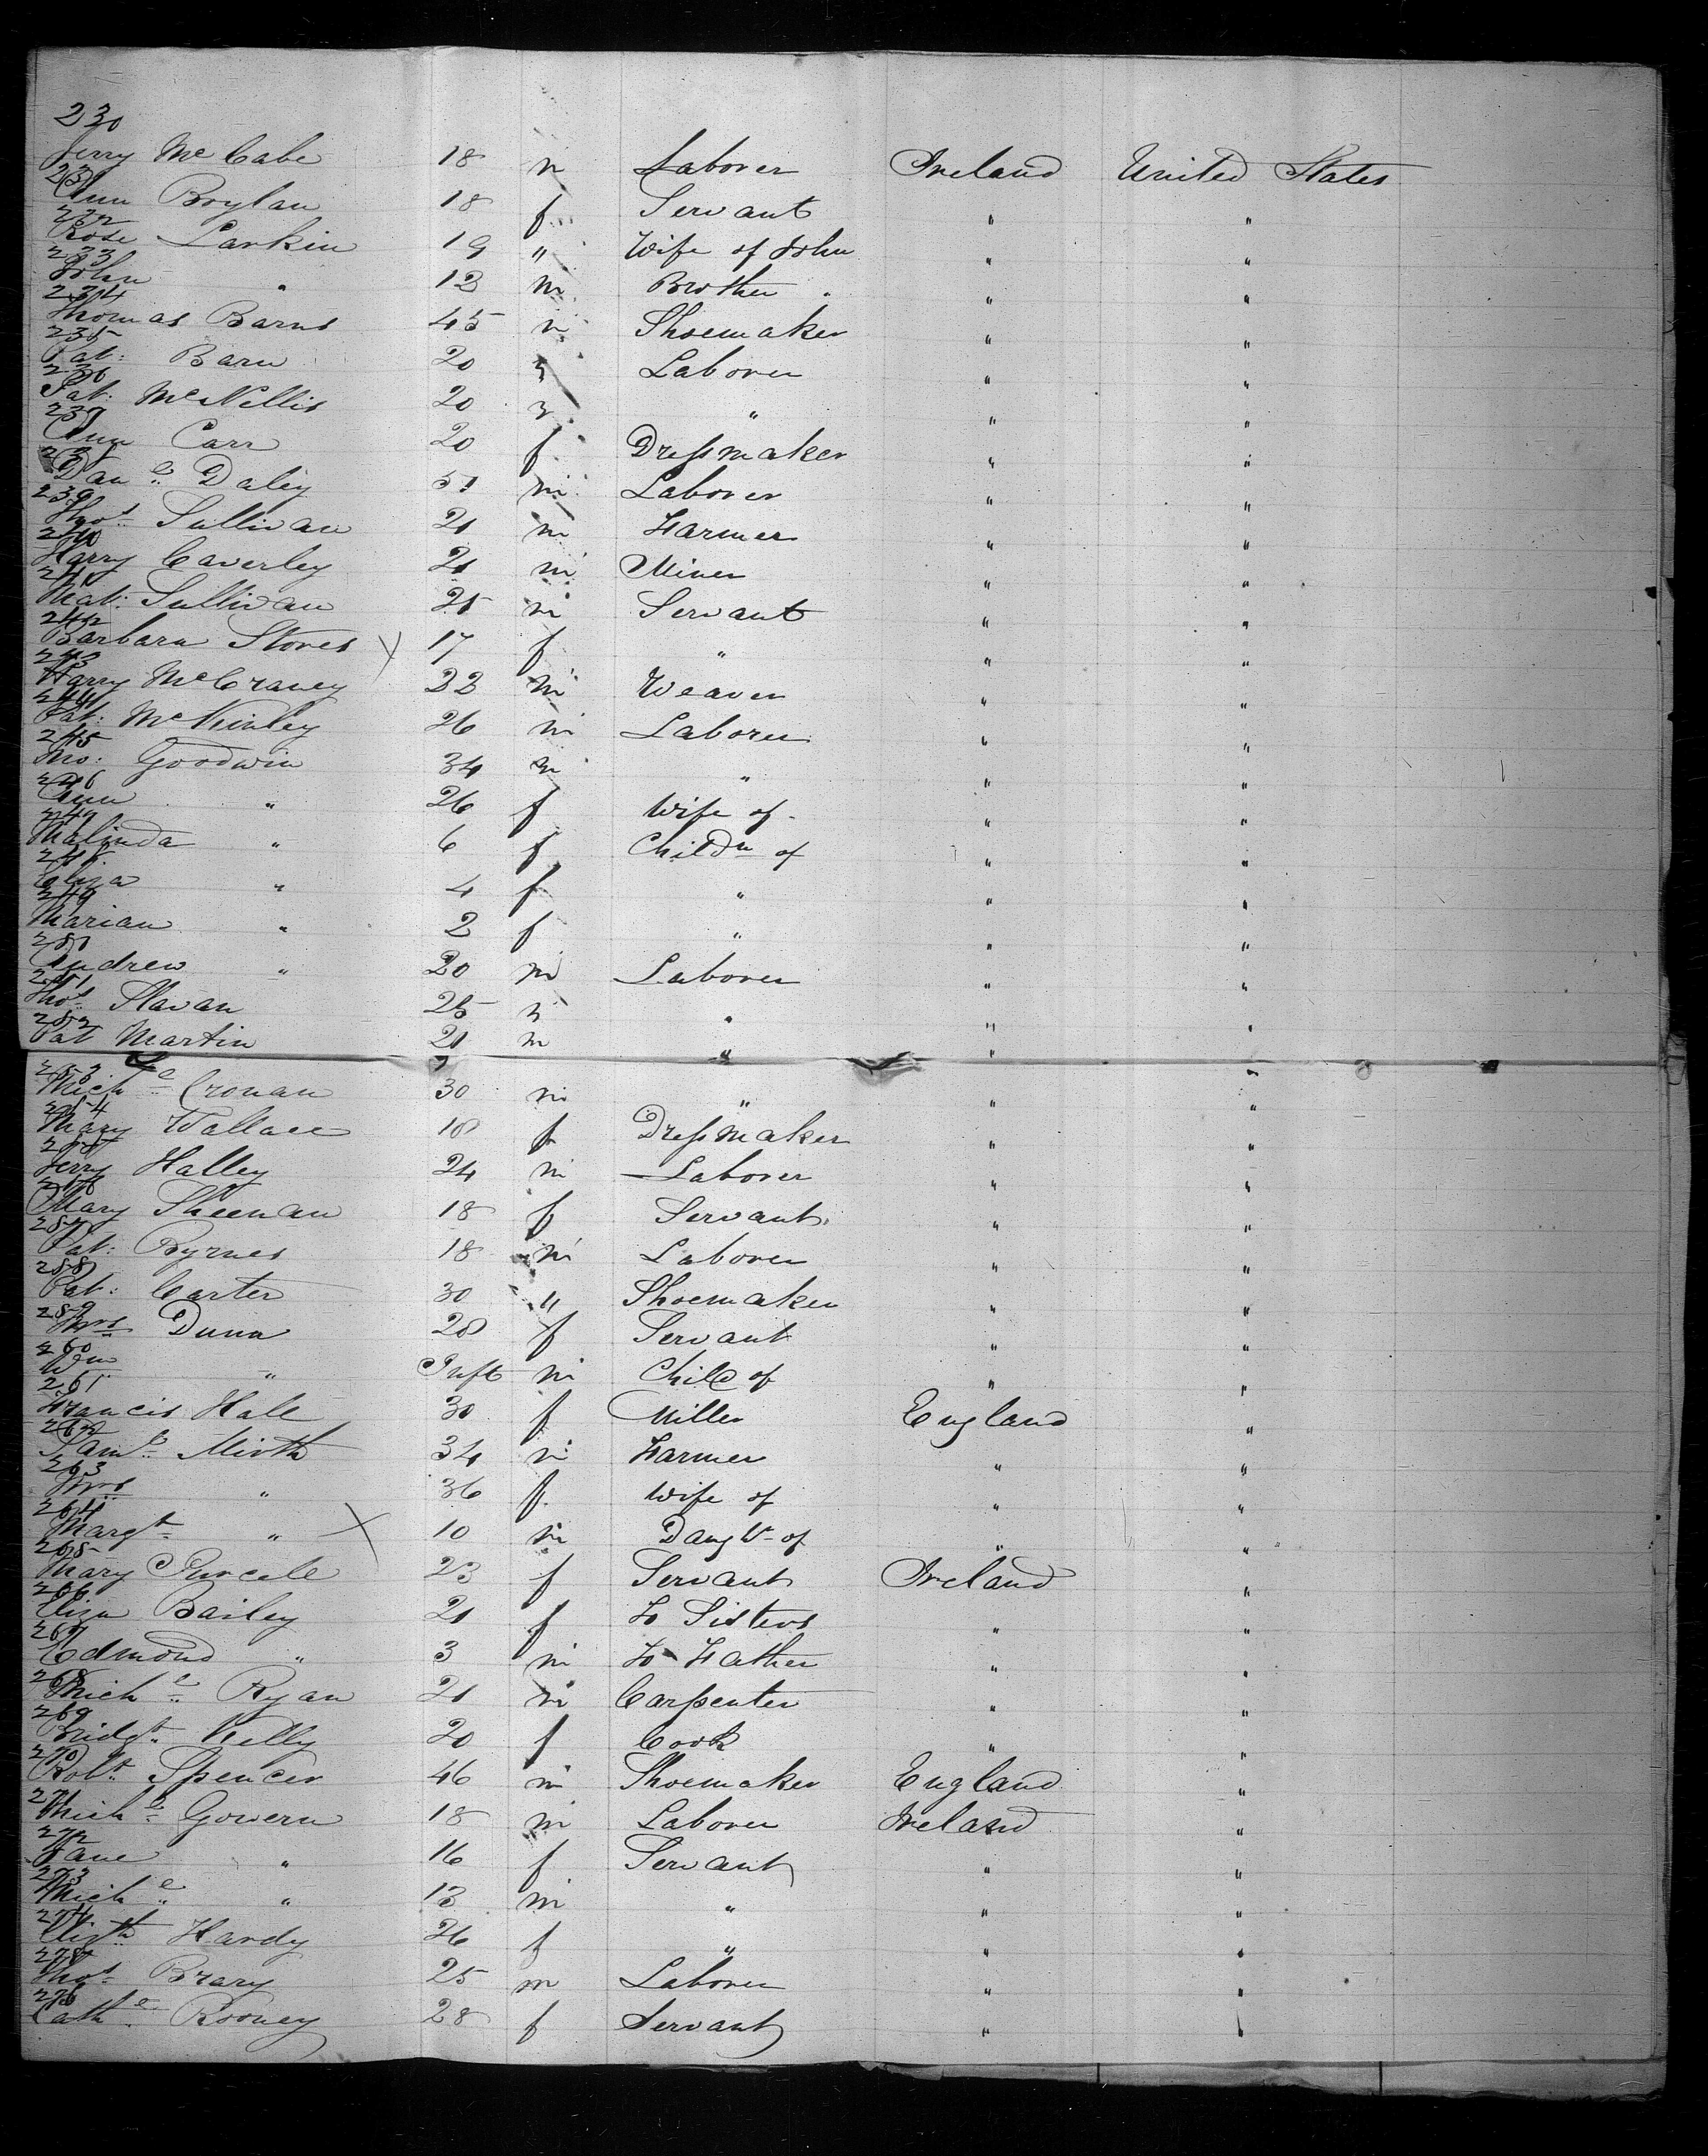 230
Jerry McCabe 18 m Laborer Ireland United States
231
Ann Boylan 18 f Servant " "
232
Rose Larkin 19 " Wife of John " "
233
John " 12 m Brother " " "
234
Thomas Barns 45 m Shoemaker " "
235
Pat: Barn 20 m Laborer " "
236
Pat: McNellis 20 m " " "
237
Ann Carr 20 f Dressmaker " "
238
Danl Daley 51 m Laborer " "
239
Thos Sullivan 21 m Farmer " "
240
Harry Caverley 21 m Miner " "
241
Mat: Sullivan 25 m Servant " "
242
Barbara Stores X 17 f " " "
243
Harry McCraney 22 m Weaver " "
244
Pat: McKinley 26 m Laborer " "
245
Tho: Goodwin 34 m " " "
246
Ann " 26 f Wife of " "
247
Malinda " 6 f Childn of " "
248
Eliza " 4 f " " "
249
Marian " 2 f " " "
250
Andrew " 20 m Laborer " "
251
Thos Slavan 25 m " " "
252
Pat Martin 21 m " " "
253
Michl Cronan 30 m " " "
254
Mary Wallace 18 f Dressmaker " "
255
Jerry Halley 24 m Laborer " "
256
Mary Sheenan 18 f Servant " "
257
Pat: Byrnes 18 m Laborer " "
258
Pat: Carter 30 " Shoemaker " "
259
Mrs Dunn 28 f Servant " "
260
Wm " Inft m Child of " "
261
Francis Hall 30 f Miller England "
262
Saml Mirth 34 m Farmer " "
263
Mrs " 36 f Wife of " "
264
Margt " X 10 m Daughtr of " "
265
Mary Purcell 23 f Servant Ireland "
266
Eliza Bailey 21 f To Sisters " "
267
Edmond " 3 m To Father " "
268
Michl Ryan 21 m Carpenter " "
269
Bridgt Kelly 20 f Cook " "
270
Robt Spencer 46 m Shoemaker England "
271
Michl Govern 18 m Laborer Ireland "
272
Jane " 16 f Servant " "
273
Michl " 13 m " " "
274
Elizth Hardy 26 f " " "
275
Thos Brary 25 m Laborer " "
276
Cathe Rooney 28 f Servant " "